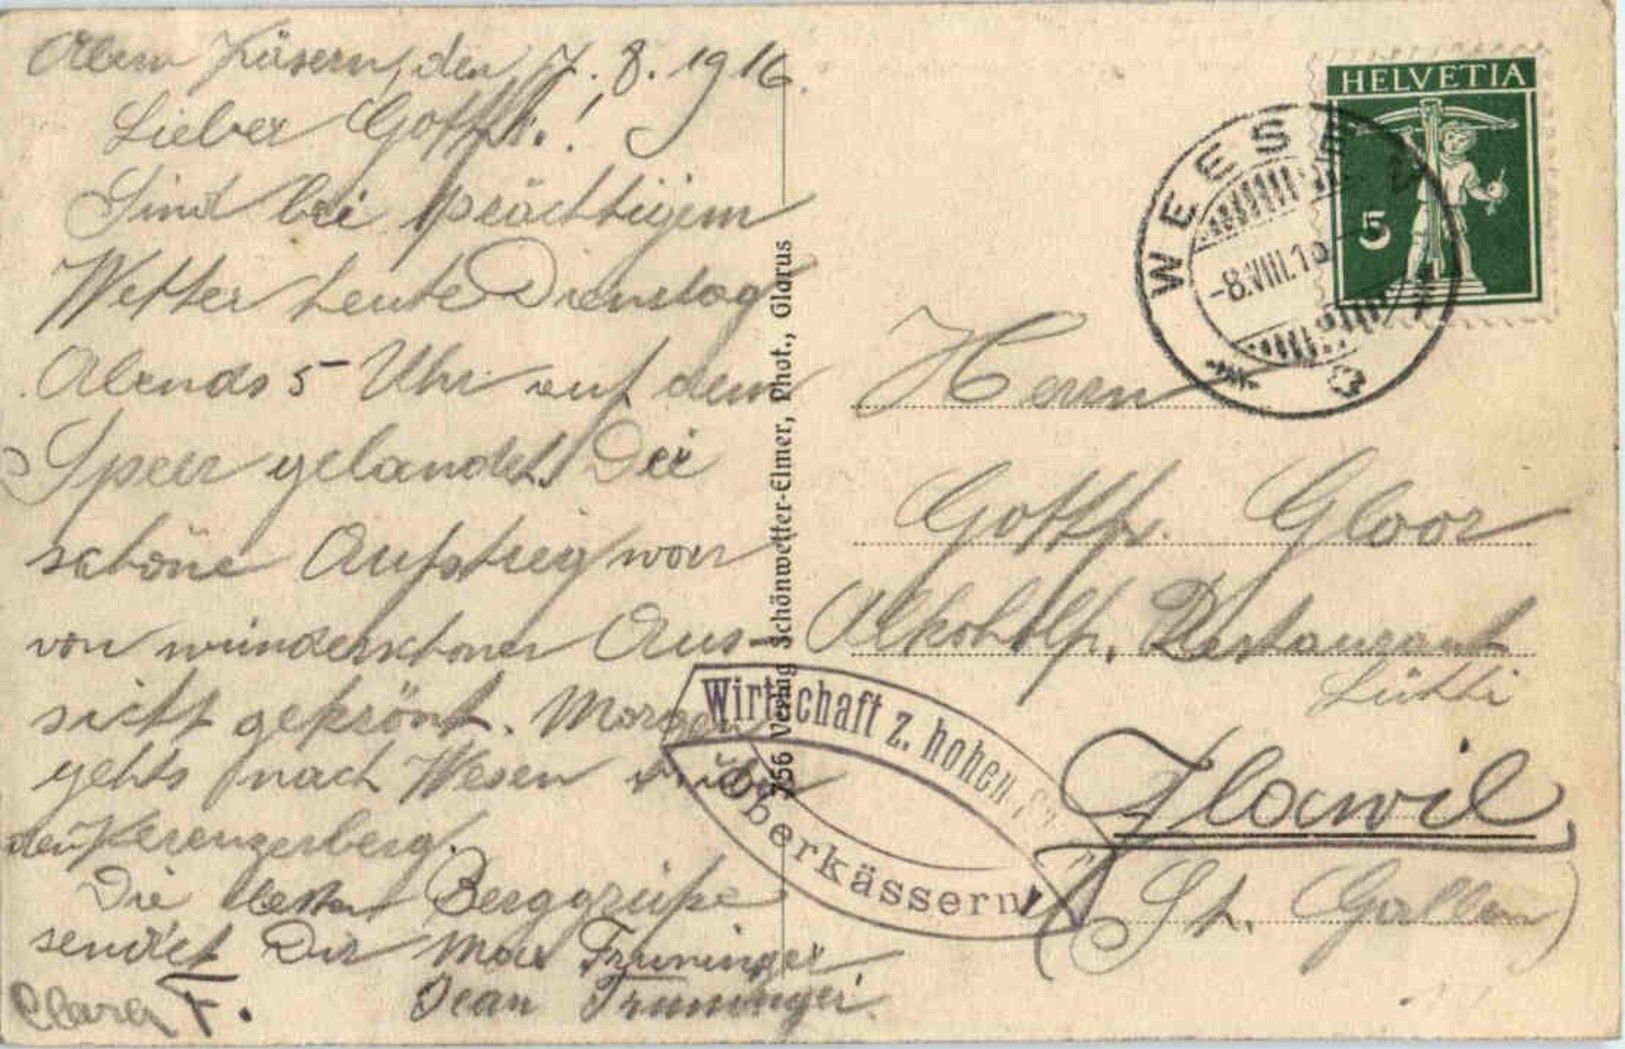 Obern Käsern, den 7. 8. 1916.
Lieber Gottfr.!
Sind bei prächtigem
Wetter heute Dienstag
Abends 5 Uhr auf dem
Speer gelandet. Die
schöne Aufstieg war
von wunderschöner Aus-
sicht gekrönt. Morgen
gehts nach Wesen über
den Kerenzerberg.
Die besten Berggrüße
sendet Dir Max Truninger
Jean Truninger
Clara T.
756 Verlag Schönwetter-Elmer, Phot., Glarus
HELVETIA
5
WEESEN
-8.VIII.16
Herrn
Gottfr. Gloor
Alkoholfr. Restaurant
Lüthi
Flawil
(St. Gallen)
Wirtschaft z. hohen
Oberkässern